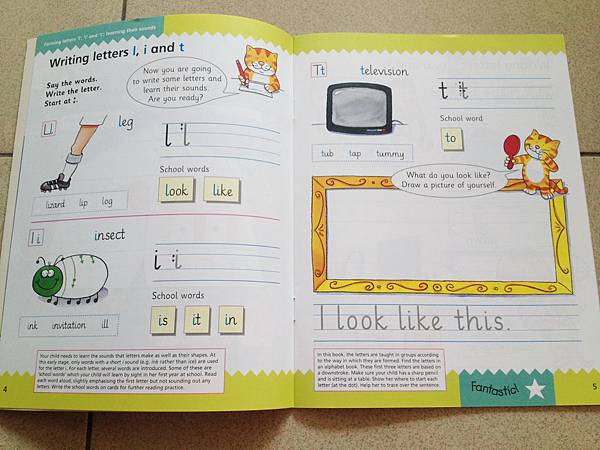 Forming letters 'l', 'i' and 't'; learning their sounds
Writing letters l, i and t
Say the words.
Write the letter.
Start at
Now you are going
to write some letters and
learn their sounds.
Are you ready?
Ll
leg
l l
School words
look like
lizard lip log
I i
insect
i i
School words
is it in
ink invitation ill
Your child needs to learn the sounds that letters make as well as their shapes. At
this early stage, only words with a short i sound (e.g. ink rather than ice) are used
for the letter i. For each letter, several words are introduced. Some of these are
'school words' which your child will learn by sight in her first year at school. Read
each word aloud, slightly emphasising the first letter but not sounding out any
letters. Write the school words on cards for further reading practice.
4
Tt
television
t t
School word
to
tub tap tummy
What do you look like?
Draw a picture of yourself.
I look like this.
In this book, the letters are taught in groups according
to the way in which they are formed. Find the letters in
an alphabet book. These first three letters are based on
a downstroke. Make sure your child has a sharp pencil
and is sitting at a table. Show her where to start each
letter (at the dot). Help her to trace over the sentence.
Fantastic!
5